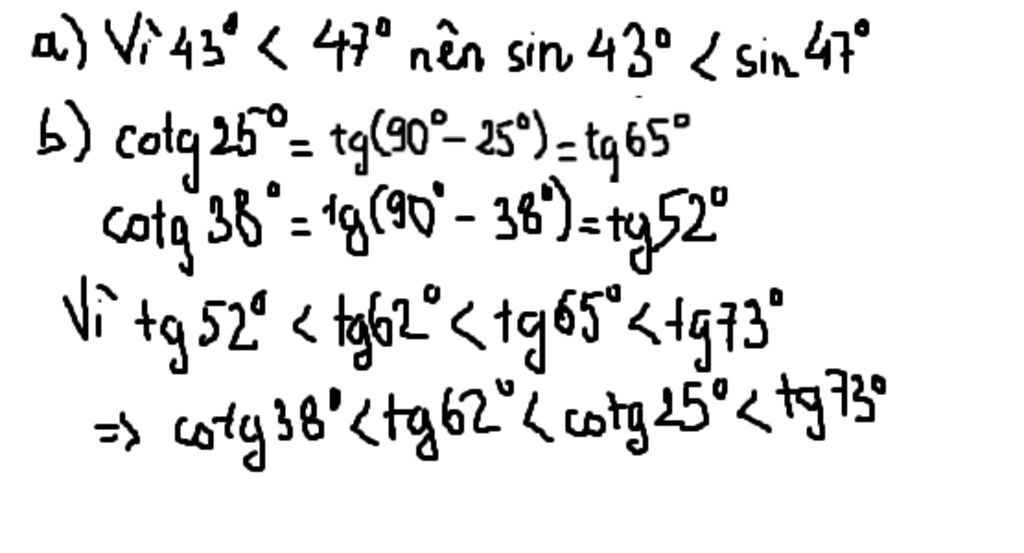 a) Vì 43° < 47° nên sin 43° < sin 47°
b) cotg 25° = tg(90° - 25°) = tg 65°
cotg 38° = tg(90° - 38°) = tg 52°
Vì tg 52° < tg 62° < tg 65° < tg 73°
=> cotg 38° < tg 62° < cotg 25° < tg 73°